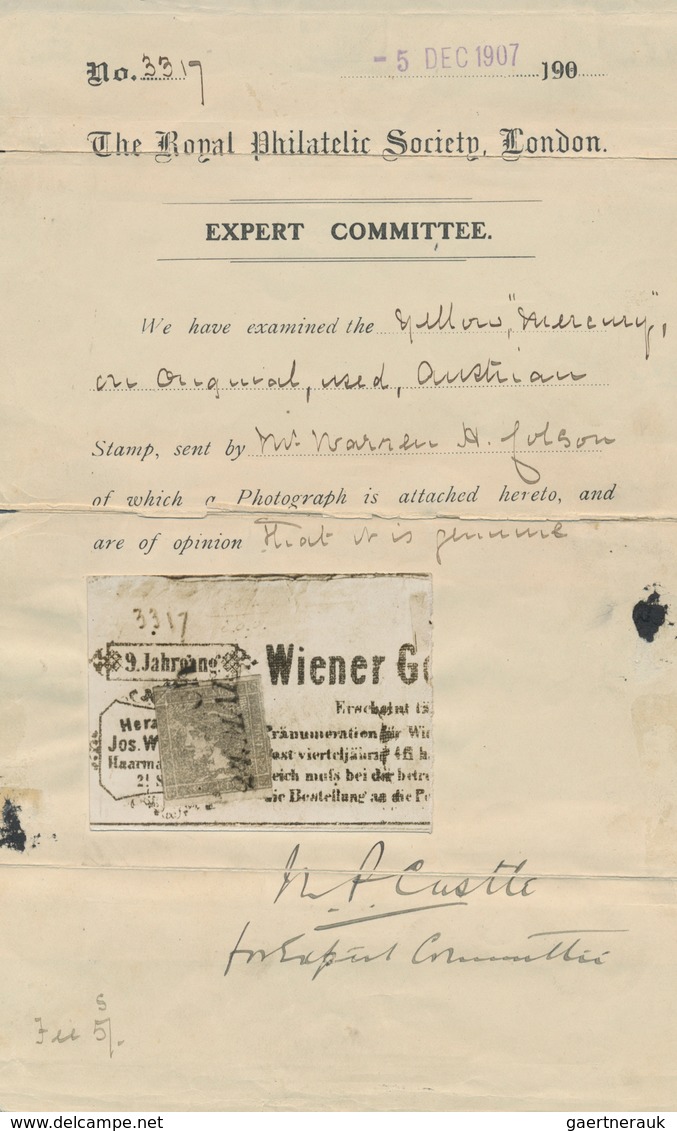 No. 3317
- 5 DEC 1907 190
The Royal Philatelic Society, London.
EXPERT COMMITTEE.
We have examined the Yellow, "Mercury",
on Original, used, Austrian
Stamp, sent by Mr Warren H. Colson
of which a Photograph is attached hereto, and
are of opinion that it is genuine
3317
9. Jahrgang
Wiener G
Erscheint tä
Hera
Pränumeration für Wie
Jos. W
Post vierteljährig 4fl
Haarma
leich muſs bei der betre
2! S
die Bestellung an die Po
M. P. Castle
for Expert Committee
Fee 5/.
gaertnerauk
gaertnerauk.com